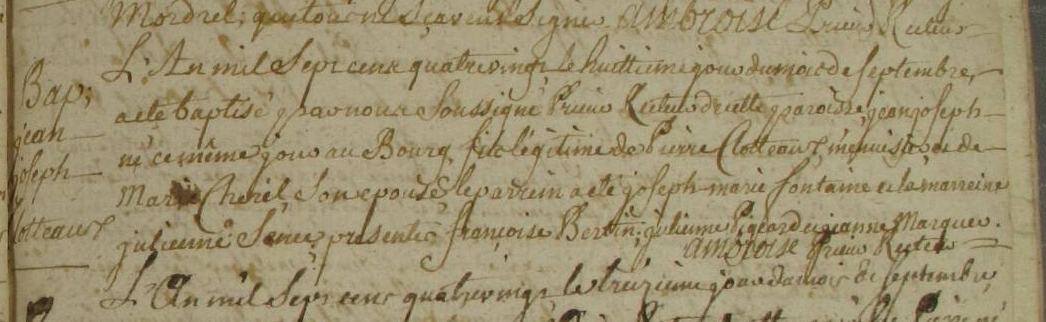 Mordrel; qui tous ne sçavent signer Ambroise Prieur Recteur
Bap;
jean
joseph
Clotteaux
L'An mil sept cent quatrevingt le huittieme jour du mois de septembre,
a eté baptisé par nous soussigné Prieur Recteur de cette paroisse, jean joseph
né ce même jour au Bourg fils légitime de Pierre Clotteaux menuisier, et de
Marie Cherel son epouse, le parrein a eté joseph marie fontaine et la marreine
julienne présentes françoise Bertin, julienne Pigeard et jeanne Marquer.
Ambroise Prieur Recteur
L'An mil sept cent quatrevingt le treizieme jour du mois de septembre,